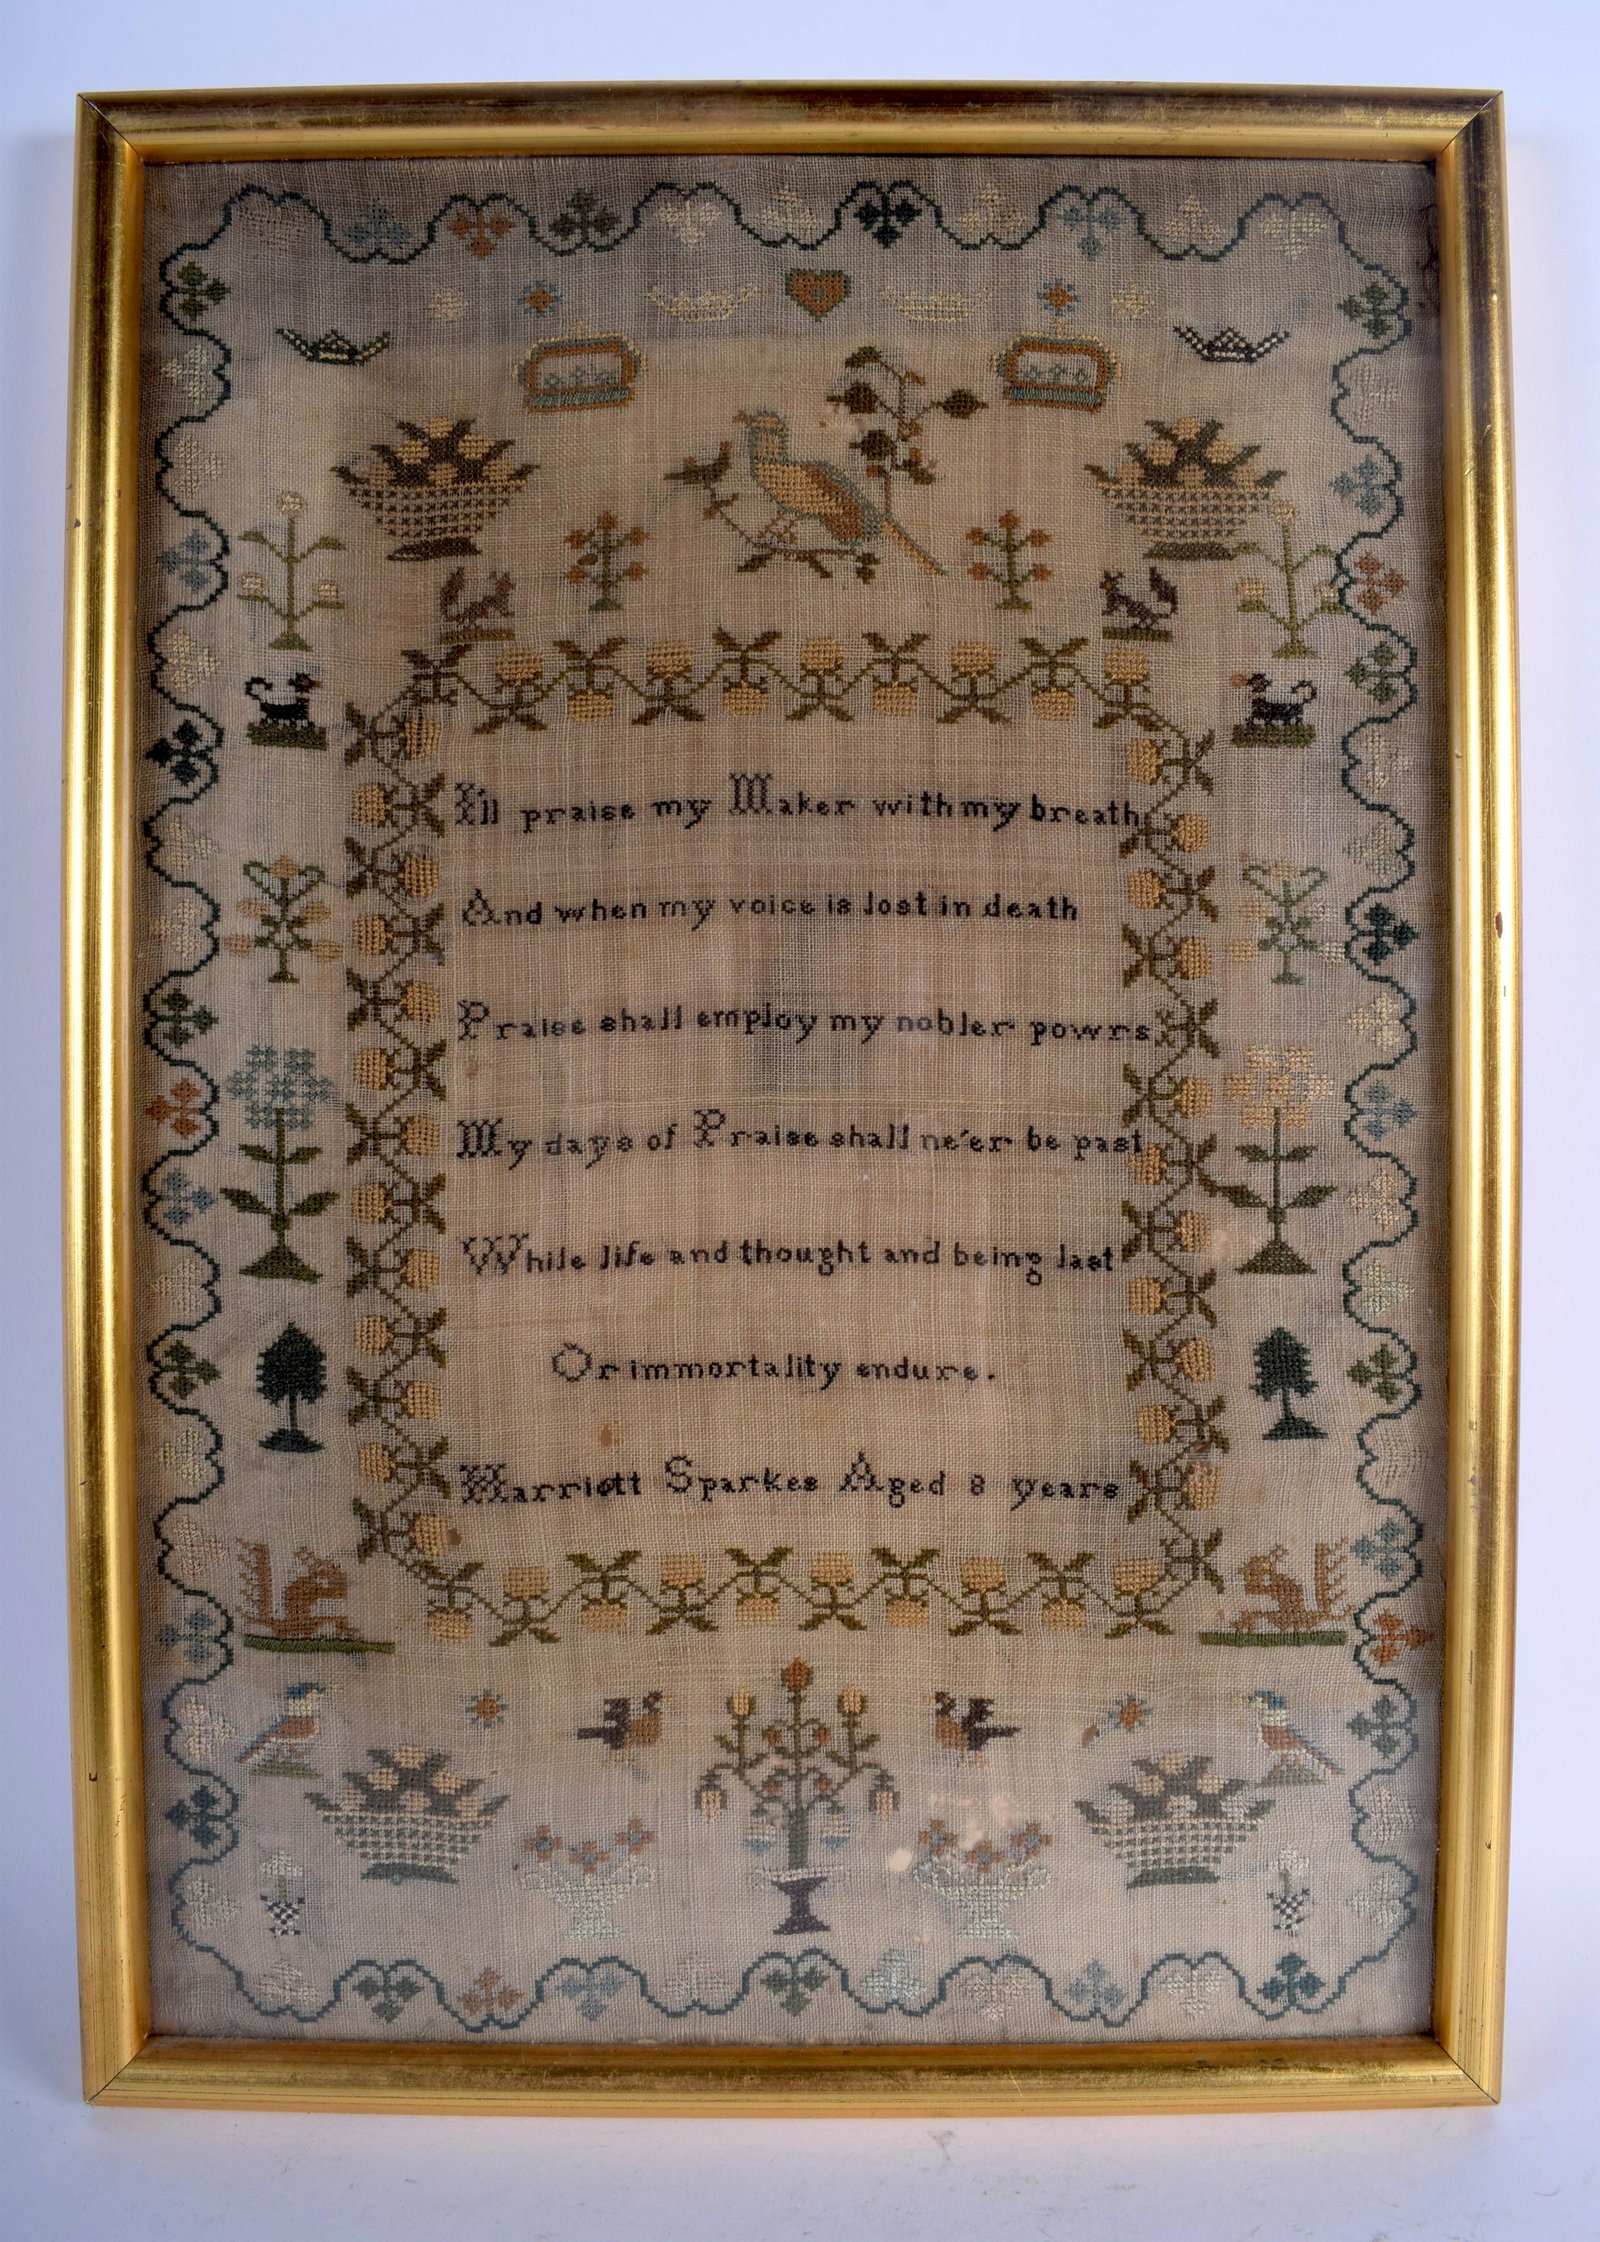 I'll praise my Maker with my breath
And when my voice is lost in death
Praise shall employ my nobler powrs
My days of Praise shall ne'er be past
While life and thought and being last
Or immortality endure.
Harriott Sparkes Aged 8 years